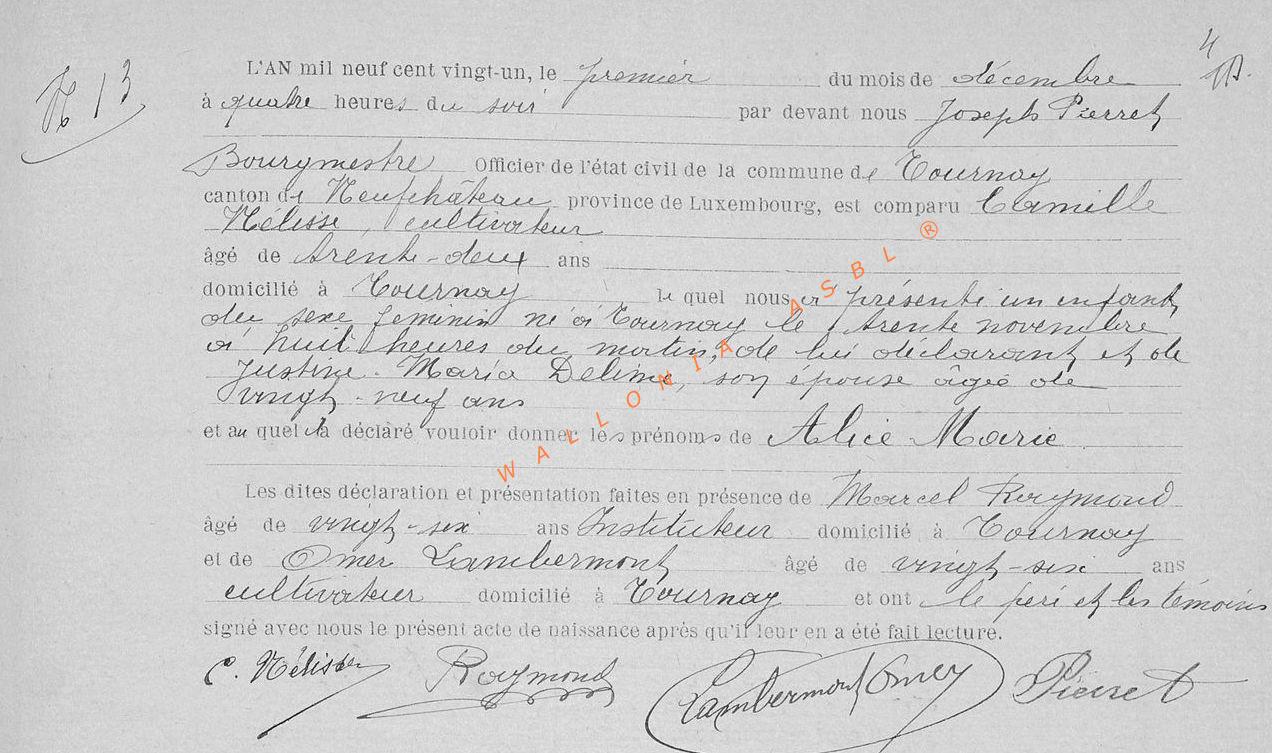 N° 13
L'AN mil neuf cent vingt-un, le premier du mois de décembre
à quatre heures du soir par devant nous Joseph Pierret
Bourgmestre Officier de l'état civil de la commune de Tournay
canton de Neufchâteau province de Luxembourg, est comparu Camille
Nélisse, cultivateur
âgé de trente-deux ans
domicilié à Tournay le quel nous a présenté un enfant
du sexe feminin né à Tournay le trente novembre
à huit heures du matin, de lui déclarant et de
Justine-Maria son épouse âgée de
vingt-neuf ans
et au quel il a déclaré vouloir donner les prénoms de Alice Marie
Les dites déclaration et présentation faites en présence de Marcel Raymond
âgé de vingt-six ans Instituteur domicilié à Tournay
et de Omer Lambermont âgé de vingt-six ans
cultivateur domicilié à Tournay et ont le père et les témoins
signé avec nous le présent acte de naissance après qu'il leur en a été fait lecture.
C. Nélisse Raymond Lambermont Omer Pierret
WALLONIA ASBL ®